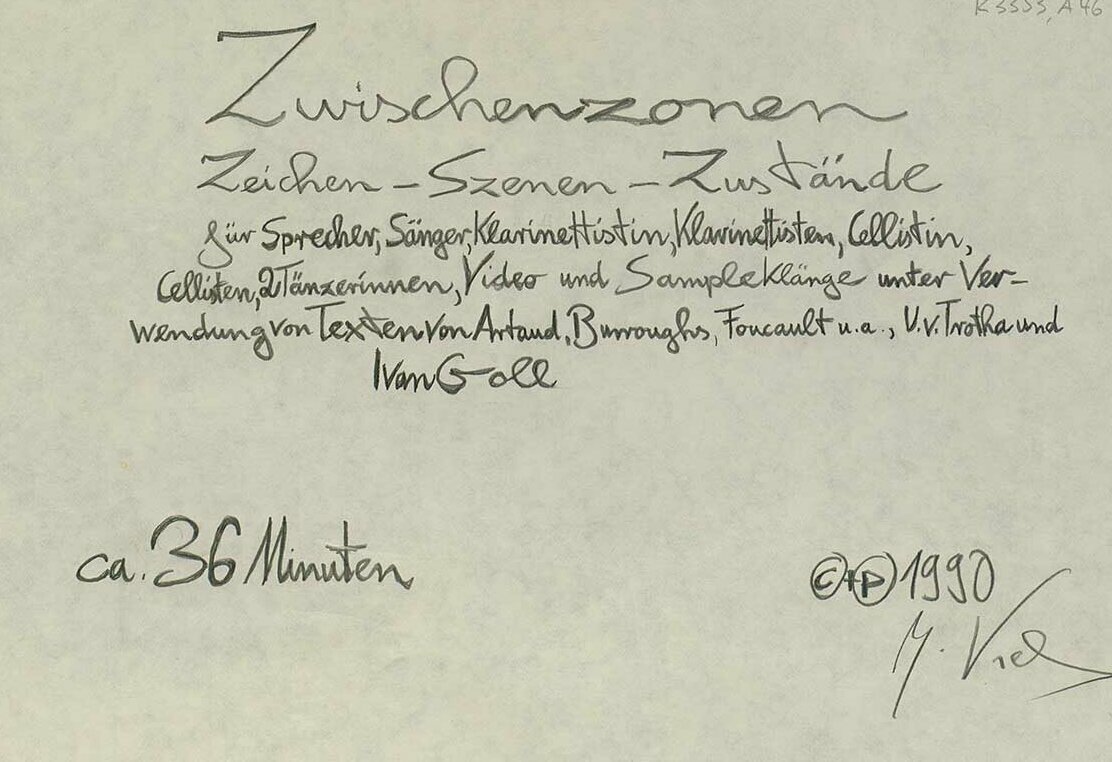 K 3553, A 46
Zwischenzonen
Zeichen – Szenen – Zustände
für Sprecher, Sänger, Klarinettistin, Klarinettisten, Cellistin,
Cellisten, 2 Tänzerinnen, Video und Sampleklänge unter Ver-
wendung von Texten von Artaud, Burroughs, Foucault u.a., U.v. Trotha und
Ivan Goll
ca. 36 Minuten
©+℗ 1990
M.